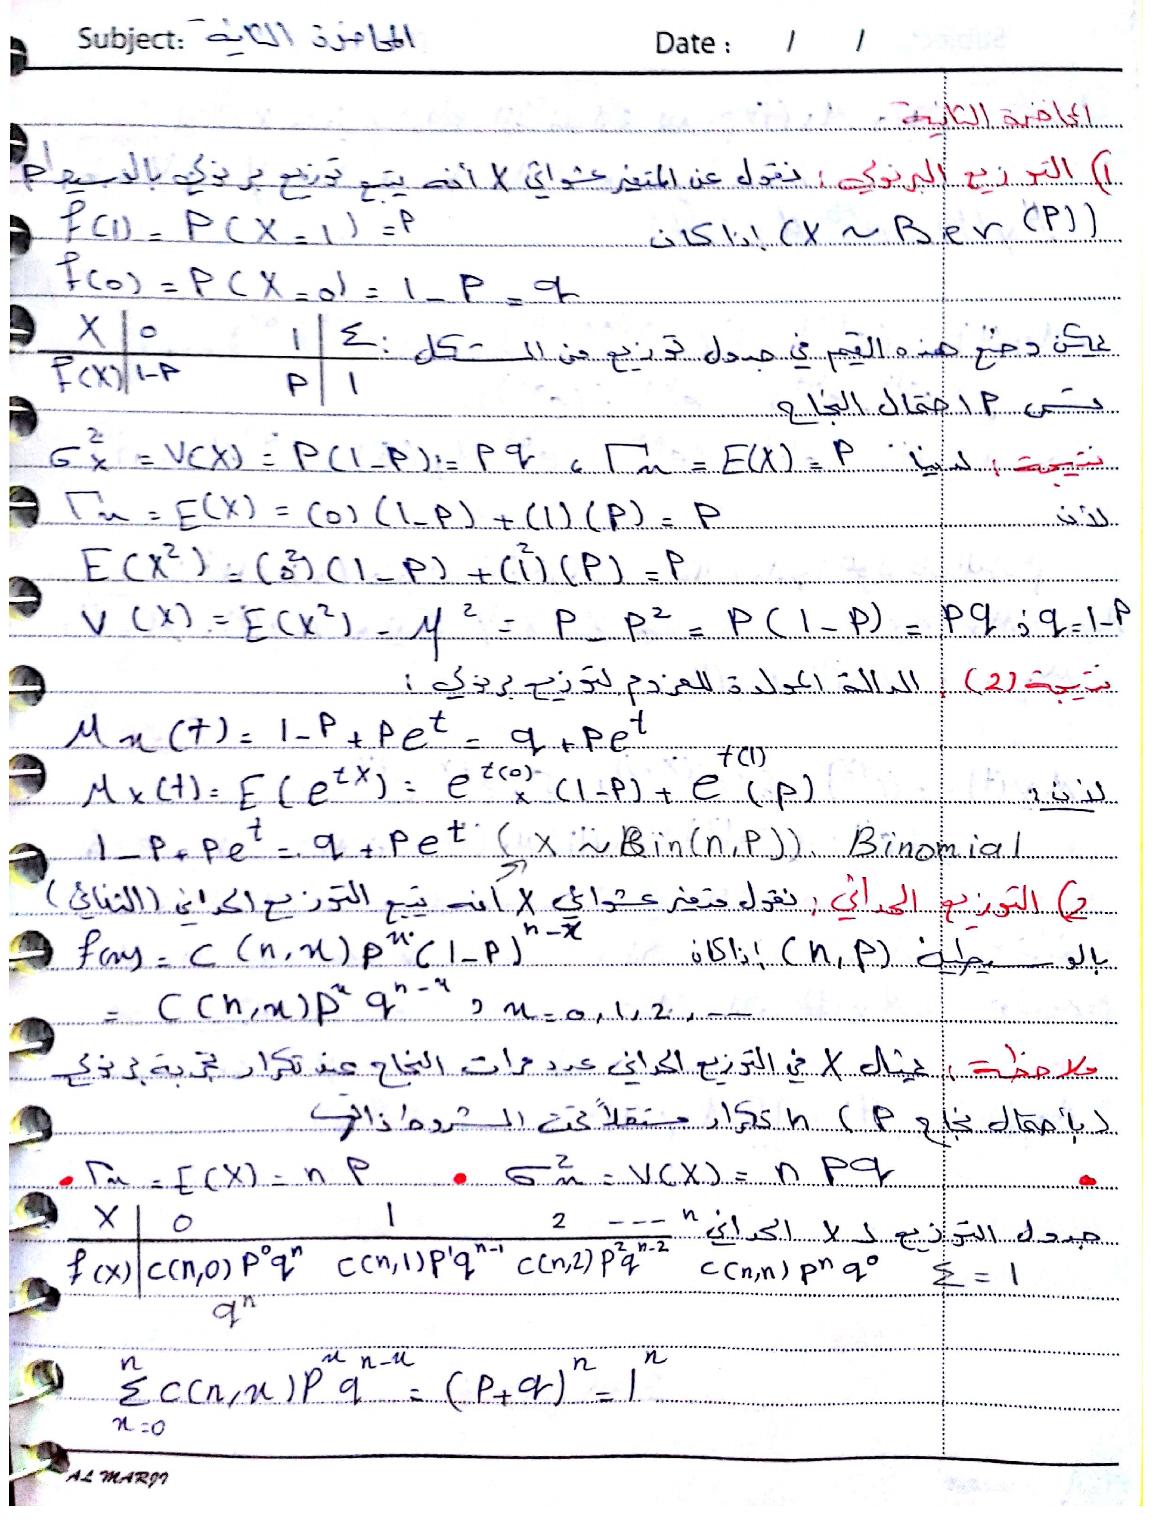 Subject: المحاضرة الثانية Date : / /
المحاضرة الثانية :
1) التوزيع البرنولي : نقول عن المتغير عشوائي X أنه يتبع توزيع برنولي بالوسيط P
(X ~ Ber (P)) إذا كان f(1) = P(X=1) = P
f(0) = P(X=0) = 1-P = q
يمكن وضع هذه القيم في جدول توزيع من الشكل :
X | 0 1 | Σ
f(X) | 1-P P | 1
يسمى P احتمال النجاح
نتيجة : لدينا μx = E(X) = P ، σ²x = V(X) = P(1-P) = Pq
لأن μx = E(X) = (0)(1-P) + (1)(P) = P
E(X²) = (0²)(1-P) + (1²)(P) = P
V(X) = E(X²) - μ² = P - P² = P(1-P) = Pq ; q = 1-P
نتيجة (2) : الدالة المولدة للعزوم لتوزيع برنولي :
Mx(t) = 1-P + Pe^t = q + Pe^t
لأن : Mx(t) = E(e^tX) = e^t(0) × (1-P) + e^t(1) (P)
1-P+Pe^t = q + Pe^t (X ~ Bin(n,P)). Binomial
2) التوزيع الحداني : نقول متغير عشوائي X أنه يتبع التوزيع الحداني (الثنائي)
بالوسيطين (n,P) إذا كان f(x) = C(n,x) P^x (1-P)^n-x
= C(n,x) P^x q^n-x , x = 0,1,2,---
ملاحظة : يمثل X في التوزيع الحداني عدد مرات النجاح عند تكرار تجربة برنولي
(باحتمال نجاح P) n تكرار مستقلاً تحت الشروط ذاتها
• μx = E(X) = n P • σ²x = V(X) = n Pq •
جدول التوزيع لـ X الحداني
X | 0 1 2 --- n
f(x) | C(n,0) P⁰q^n C(n,1)P¹q^n-1 C(n,2) P²q^n-2 C(n,n) P^n q⁰ Σ = 1
q^n
n
Σ C(n,x) P^x q^n-x = (P+q)^n = 1^n
x=0
AL MARJI